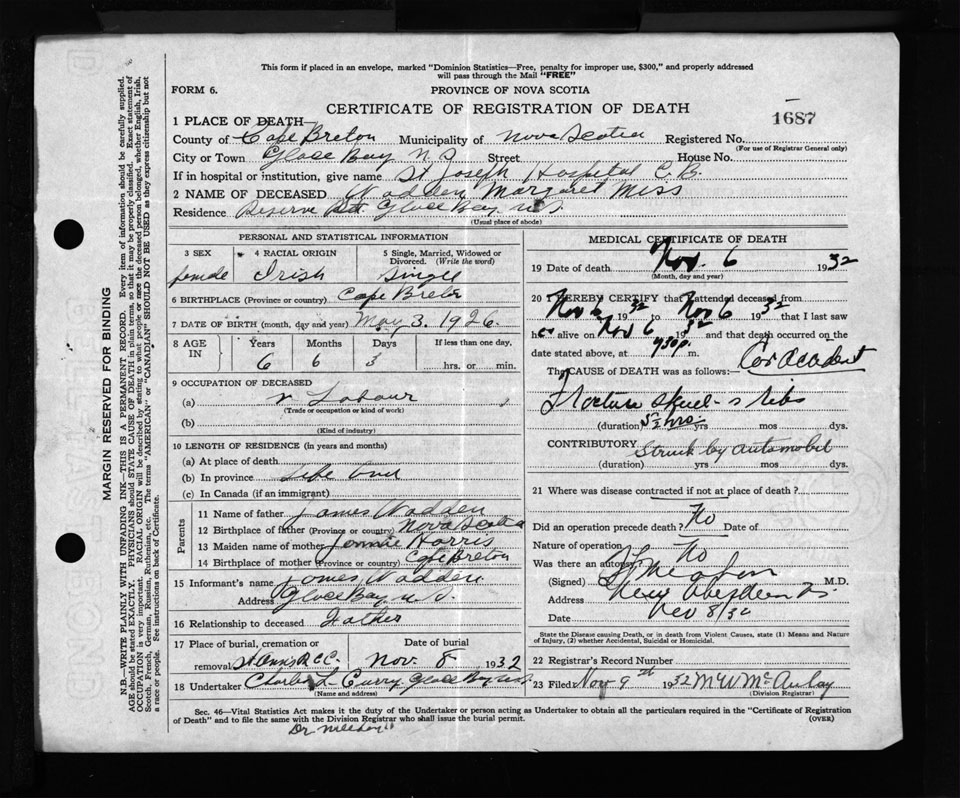 This form if placed in an envelope, marked "Dominion Statistics—Free, penalty for improper use, $300," and properly addressed
will pass through the Mail "FREE"
FORM 6.
PROVINCE OF NOVA SCOTIA
CERTIFICATE OF REGISTRATION OF DEATH
1687
1 PLACE OF DEATH
County of Cape Breton Municipality of Nova Scotia Registered No.
(For use of Registrar General only)
City or Town Glace Bay N.S Street House No.
If in hospital or institution, give name St Joseph Hospital C.B.
2 NAME OF DECEASED Wadden Margaret Miss
Residence Reserve Glace Bay N.S.
(Usual place of abode)
PERSONAL AND STATISTICAL INFORMATION
3 SEX 4 RACIAL ORIGIN 5 Single, Married, Widowed or Divorced. (Write the word)
female Irish Single
6 BIRTHPLACE (Province or country) Cape Breton
7 DATE OF BIRTH (month, day and year) May 3. 1926.
8 AGE IN Years Months Days If less than one day.
6 6 3 hrs. or min.
9 OCCUPATION OF DECEASED
(a) Labour
(Trade or occupation or kind of work)
(b)
(Kind of industry)
10 LENGTH OF RESIDENCE (in years and months)
(a) At place of death
(b) In province Life
(c) In Canada (if an immigrant)
Parents
11 Name of father James Wadden
12 Birthplace of father (Province or country) Nova Scotia
13 Maiden name of mother Jennie Harris
14 Birthplace of mother (Province or country) Cape Breton
15 Informant's name James Wadden
Address Glace Bay N.S.
16 Relationship to deceased Father
17 Place of burial, cremation or removal Date of burial
St Anns R.C.C. Nov. 8 1932
18 Undertaker Charles L Curry Glace Bay N.S.
(Name and address)
MEDICAL CERTIFICATE OF DEATH
19 Date of death Nov. 6 1932
(Month, day and year)
20 I HEREBY CERTIFY that I attended deceased from
Nov 6 1932 to Nov 6 1932 that I last saw
her alive on Nov 6 1932 and that death occurred on the
date stated above, at 730p. m.
The CAUSE of DEATH was as follows:— Car Accident
Fracture Skull - ribs
(duration) yrs mos dys.
CONTRIBUTORY Struck by automobil
(duration) yrs mos dys.
21 Where was disease contracted if not at place of death?
Did an operation precede death? No Date of
Nature of operation
Was there an autopsy? No
(Signed) M.D.
Address New Aberdeen N.S.
Date Nov 8/32
State the Disease causing Death, or in death from Violent Causes, state (1) Means and Nature
of Injury, (2) whether Accidental, Suicidal or Homicidal.
22 Registrar's Record Number
23 Filed Nov 9th 1932 M W McAulay
(Division Registrar)
Sec. 46—Vital Statistics Act makes it the duty of the Undertaker or person acting as Undertaker to obtain all the particulars required in the "Certificate of Registration
of Death" and to file the same with the Division Registrar who shall issue the burial permit.
(OVER)
MARGIN RESERVED FOR BINDING
N.B.—WRITE PLAINLY WITH UNFADING INK—THIS IS A PERMANENT RECORD. Every item of information should be carefully supplied.
AGE should be stated EXACTLY. PHYSICIANS should STATE CAUSE OF DEATH in plain terms, so that it may be properly classified. Exact statement of
OCCUPATION is very important. RACIAL ORIGIN will be described by stating to what people or race the deceased person belonged, whether English, Irish,
Scotch, French, German, Russian, Ruthenian, etc. The terms "AMERICAN" or "CANADIAN" SHOULD NOT BE USED as they express citizenship but not
a race or people. See instructions on back of Certificate.